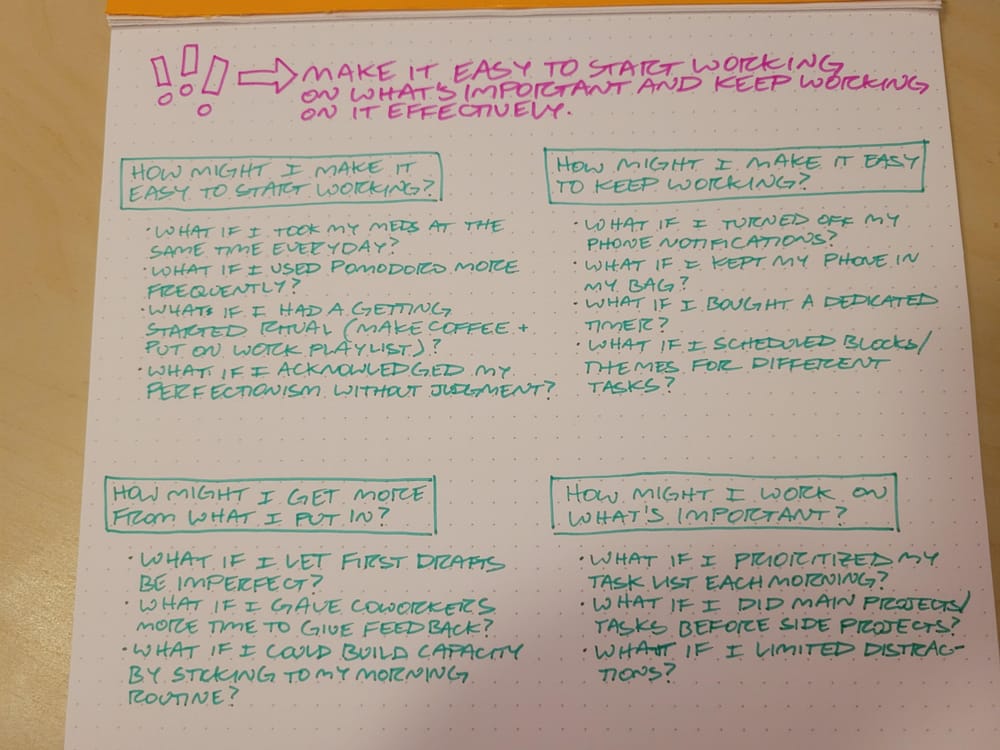 !!! → MAKE IT EASY TO START WORKING
ON WHAT'S IMPORTANT AND KEEP WORKING
ON IT EFFECTIVELY.
HOW MIGHT I MAKE IT
EASY TO START WORKING?
• WHAT IF I TOOK MY MEDS AT THE
SAME TIME EVERYDAY?
• WHAT IF I USED POMODORO MORE
FREQUENTLY?
• WHAT IF I HAD A GETTING
STARTED RITUAL (MAKE COFFEE +
PUT ON WORK PLAYLIST)?
• WHAT IF I ACKNOWLEDGED MY
PERFECTIONISM WITHOUT JUDGMENT?
HOW MIGHT I MAKE IT EASY
TO KEEP WORKING?
• WHAT IF I TURNED OFF MY
PHONE NOTIFICATIONS?
• WHAT IF I KEPT MY PHONE IN
MY BAG?
• WHAT IF I BOUGHT A DEDICATED
TIMER?
• WHAT IF I SCHEDULED BLOCKS/
THEMES FOR DIFFERENT
TASKS?
HOW MIGHT I GET MORE
FROM WHAT I PUT IN?
• WHAT IF I LET FIRST DRAFTS
BE IMPERFECT?
• WHAT IF I GAVE COWORKERS
MORE TIME TO GIVE FEEDBACK?
• WHAT IF I COULD BUILD CAPACITY
BY STICKING TO MY MORNING
ROUTINE?
HOW MIGHT I WORK ON
WHAT'S IMPORTANT?
• WHAT IF I PRIORITIZED MY
TASK LIST EACH MORNING?
• WHAT IF I DID MAIN PROJECTS/
TASKS BEFORE SIDE PROJECTS?
• WHAT IF I LIMITED DISTRAC-
TIONS?